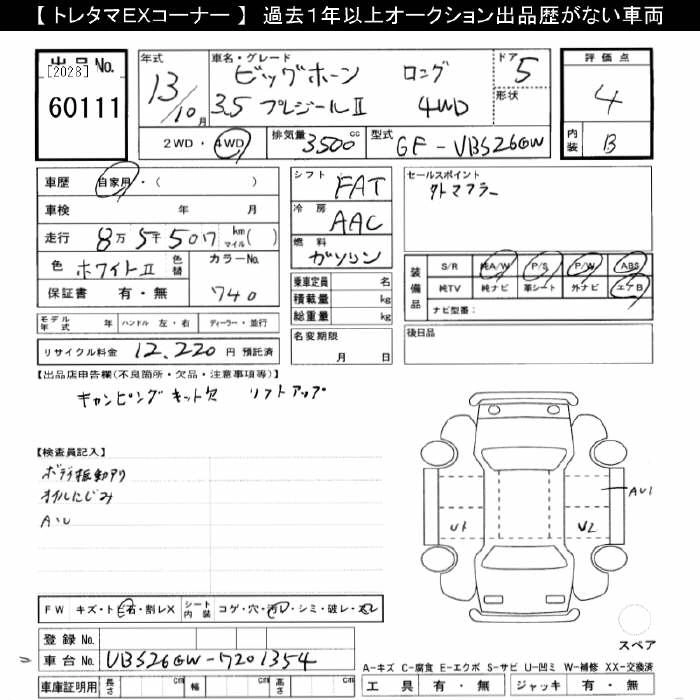 【 トレタマEXコーナー 】 過去１年以上オークション出品歴がない車両
出品 No.
[2028]
60111
年式 13/10月
車名・グレード ビッグホーン ロング
3.5 プレジールⅡ 4WD
ドア 5
形状
2WD・4WD 排気量 3500 cc 型式 GF-UBS26GW
評価点 4
内装 B
車歴 自家用・( )
車検 年 月
走行 8万 5千 507 km マイル( )
色 ホワイトⅡ 色替 カラーNo. 740
保証書 有・無
モデル年式 年 ハンドル 左・右 ディーラー・並行
リサイクル料金 12,220 円 預託済
シフト FAT
冷房 AAC
燃料 ガソリン
乗車定員 名
積載量 kg
総重量 kg
名変期限 月 日
セールスポイント
外マフラー
装備品 S/R 純A/W P/S P/W ABS
純TV 純ナビ 革シート 外ナビ エアB
ナビ型番：
後日品
【出品店申告欄(不良箇所・欠品・注意事項等)】
キャンピングキット欠 リフトアップ
【検査員記入】
ボデデ振動アリ
オイルにじみ
A・U
AU1
U1
U2
FW キズ・トビ石・割レX シート内装 コゲ・穴・汚レ・シミ・破レ・スレ
登録 No.
車台 No. UBS26GW-7201354
車庫証明用 長さ cm 幅 cm 高さ cm
スペア
A-キズ C-腐食 E-エクボ S-サビ U-凹ミ W-補修 XX-交換済
工具 有・無 ジャッキ 有・無